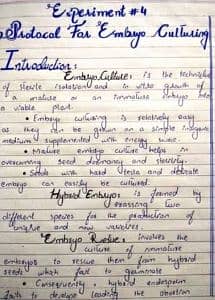 Experiment #4
Protocol For Embryo Culturing
Introduction:
Embryo Culture: is the technique
of sterile isolation and in vitro growth of
a mature or an immature embryo into
a viable plant.
• Embryo culturing is relatively easy
as they can be grown on a simple inorganic
medium supplemented with energy source.
• Mature embryo culture helps in
overcoming seed dormancy and sterility.
• Seeds with hard testa and
embryo can easily be cultured.
Hybrid Embryo is formed by
crossing two
different species for the production of
unique and new varieties
Embryo Rescue: involves the
culture of immature
embryos to rescue them from hybrid
seeds which fail to germinate
• Consequently, hybrid endosperm
fails to develop leading the abortion